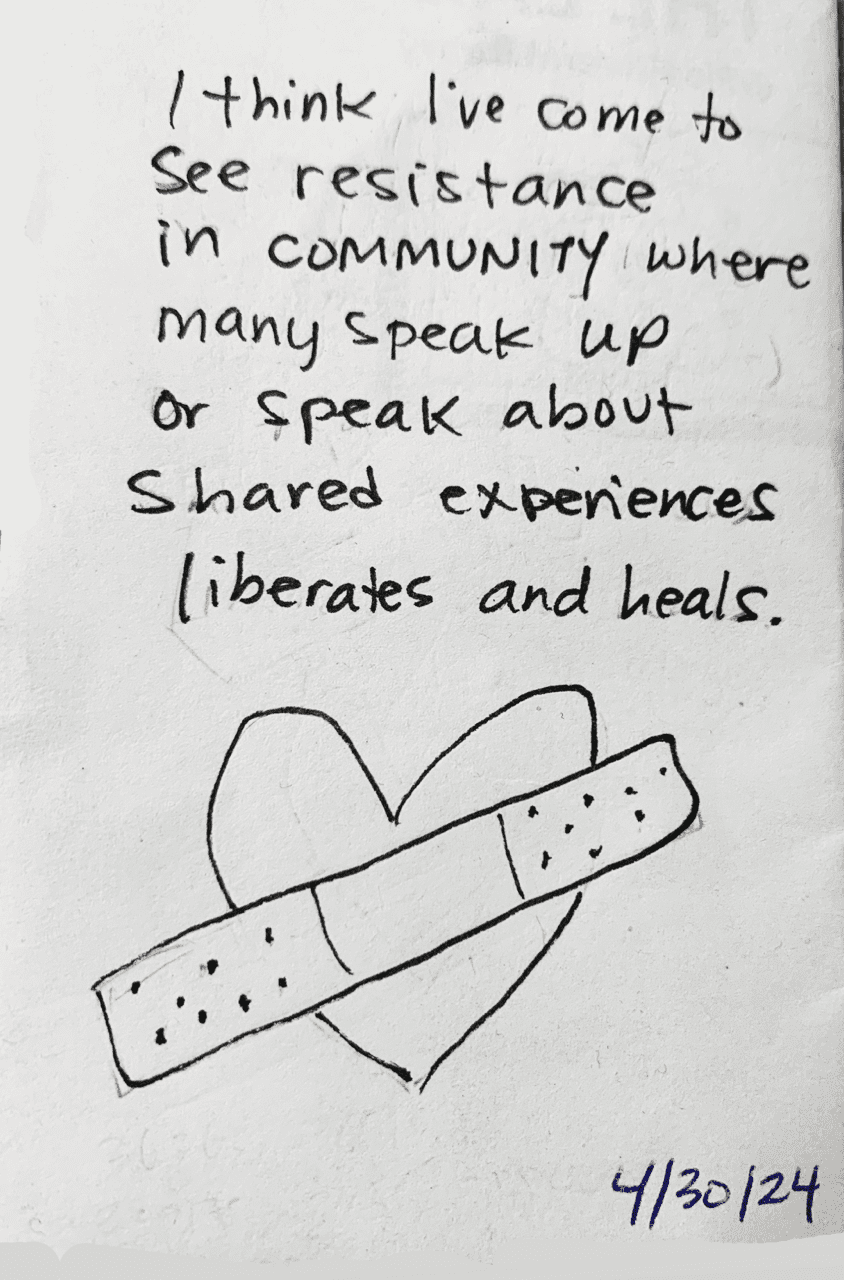 I think I've come to
See resistance
in COMMUNITY where
many speak up
or speak about
Shared experiences
liberates and heals.
4/30/24